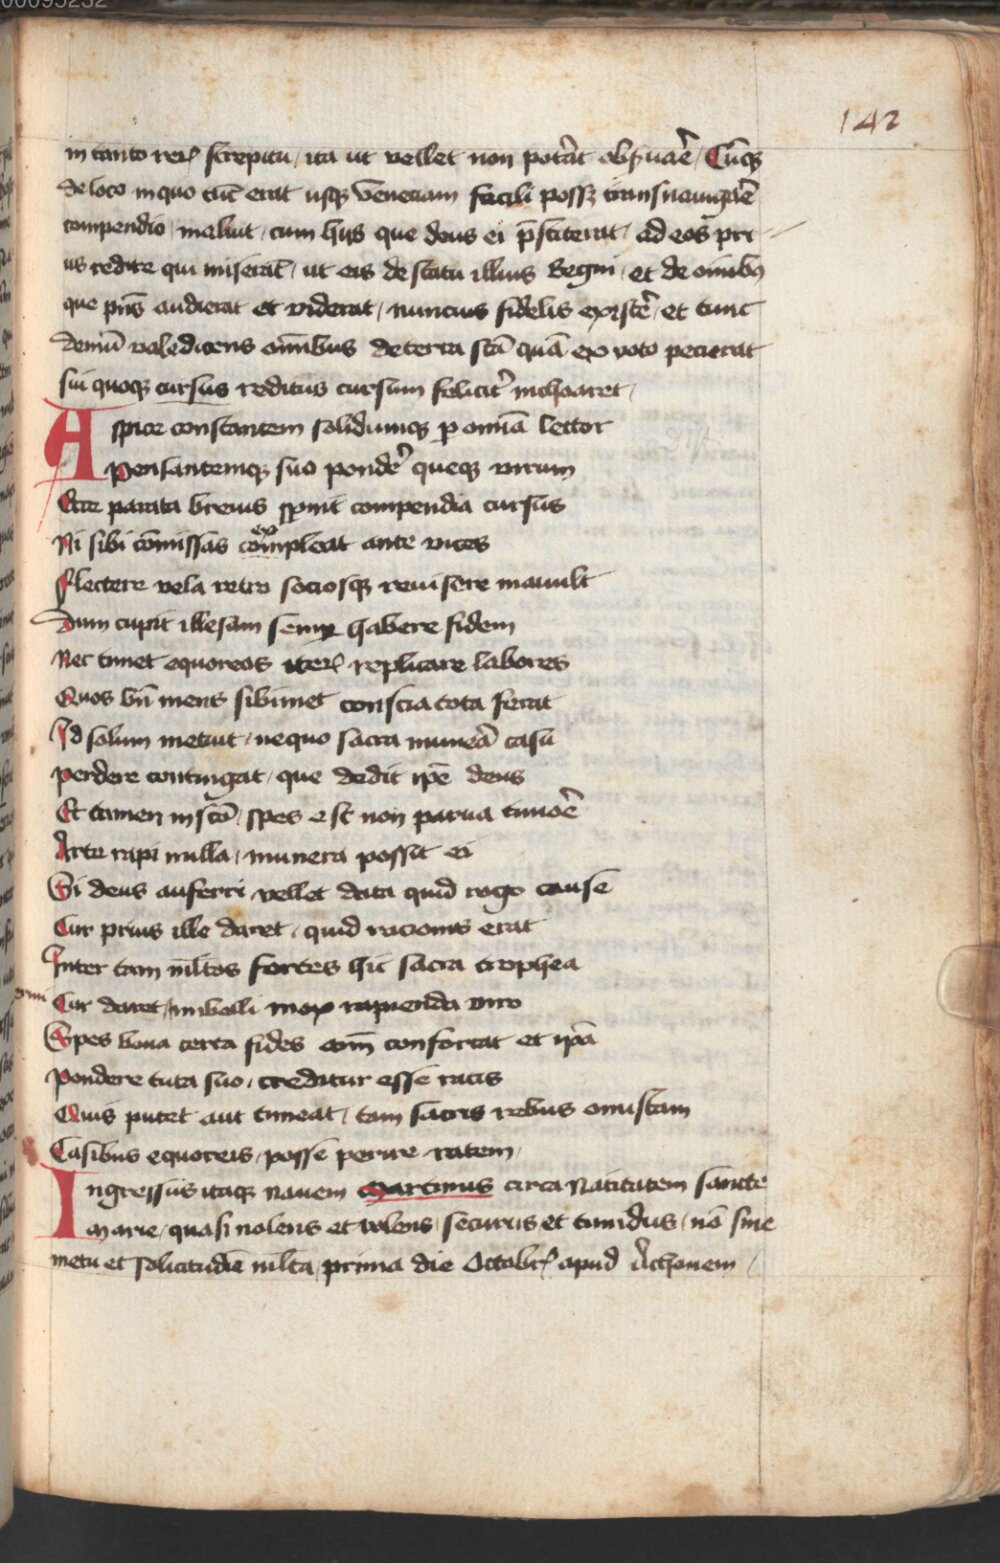 00095252
142
in tanto reꝝ strepitu / ita ut vellet non potᷣat obẜuaᷣe / Cūqꝫ
de loco in quo tūc erat usqꝫ veneciam facili possꝫ transnauigaᷣe
compendio / maluit / cum hijs que deus ei p̄stiterat / ad eos pri
us redire qui miserāt / ut eis de statu illius Regni / et de omībꝫ
que p̄us audierat et viderat / nuncius fidelis existeᷣ / et tunc
demū valedicens omībus de terra scā quā ex voto pecierat
sui quoqꝫ cursus reditus cursum felicitᷣ inchoaret /
Aspice constantem solidumqꝫ ꝑ omīa lector
Pensantemqꝫ suo pondeᷣ queqꝫ virum
Ecce parata breuis spōnt compendia cursus
Ni sibi cōmissas compleat ante vices
ex
Flectere vela retro sociosqꝫ reuisere mauult
Dum cupit illesam semꝑ habere fidem
Nec timet equoreos iteꝝ replicare labores
Quos bn̄ mens sibimet conscia tota ferat
Id solum metuit / nequo sacra muneᷣa casu
Perdere contingat / que dedit ip̄e deus
Et tamen in scō / spes est non parua timoᷣe
Arte rapi nulla / munera possit ei
Si deus auferri / vellet data quid rogo cause
Cur prius ille daret / quid racionis erat
Inter tam ml̄tos fortes hic sacra trophea
Cur daret / imbelli mox rapienda viro
Spes bona certa fides eōm confortat et ip̄a
Pondere tuta suo / creditur esse ratis
Quis putet aut timeat / tam sacris rebus onustam
Casibus equoreis / posse perire ratem /
Ingressus itaqꝫ nauem Martinus circa Natitatem sancte
Marie / quasi nolens et volens / securus et timidus / nō sine
metu et solicitudīe ml̄ta / prima die Octobrꝭ apud Achonem /